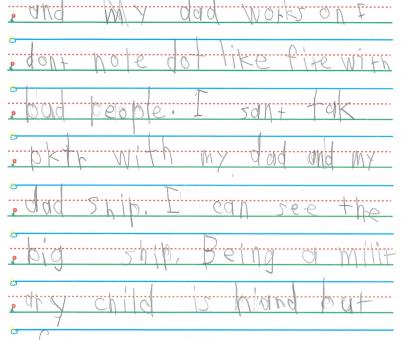 and My dad works on I
dont note dot like fite with
bad people. I sant tak
pktr with my dad and my
dad ship. I can see the
big ship. Being a milit
ary child is hiand but